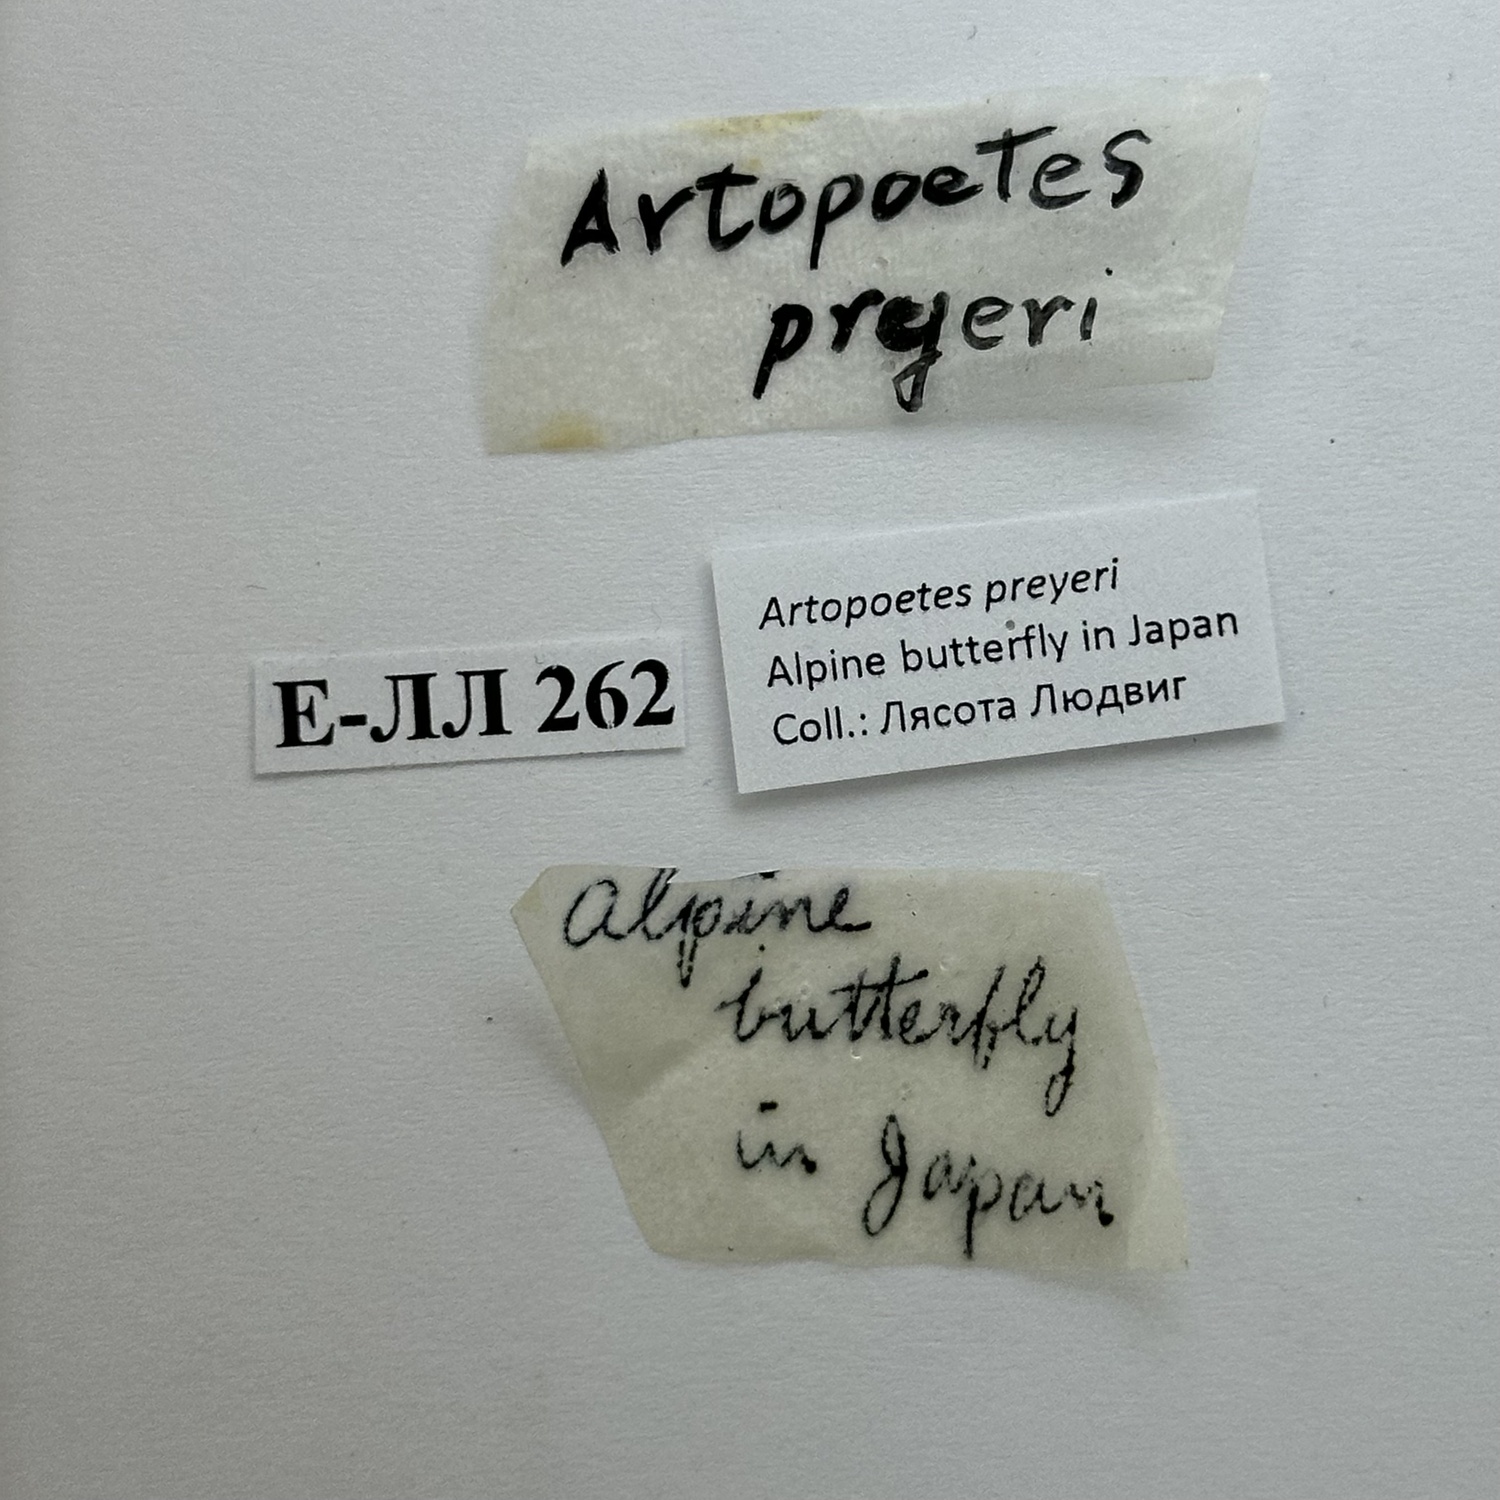 Artopoetes
preyeri
Artopoetes preyeri
Alpine butterfly in Japan
Coll.: Лясота Людвиг
Е-ЛЛ 262
Alpine
butterfly
in Japan